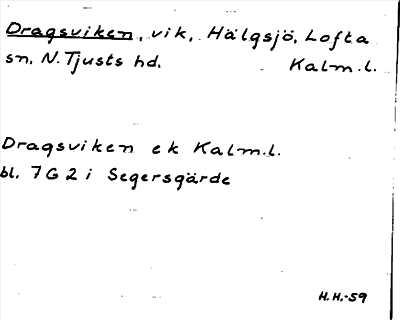 Dragsviken, vik, Hälgsjö, Lofta
sn, N. Tjusts hd. Kalm.l.
Dragsviken ek Kalm.l.
bl. 7G2i Segersgärde
H.H.-59